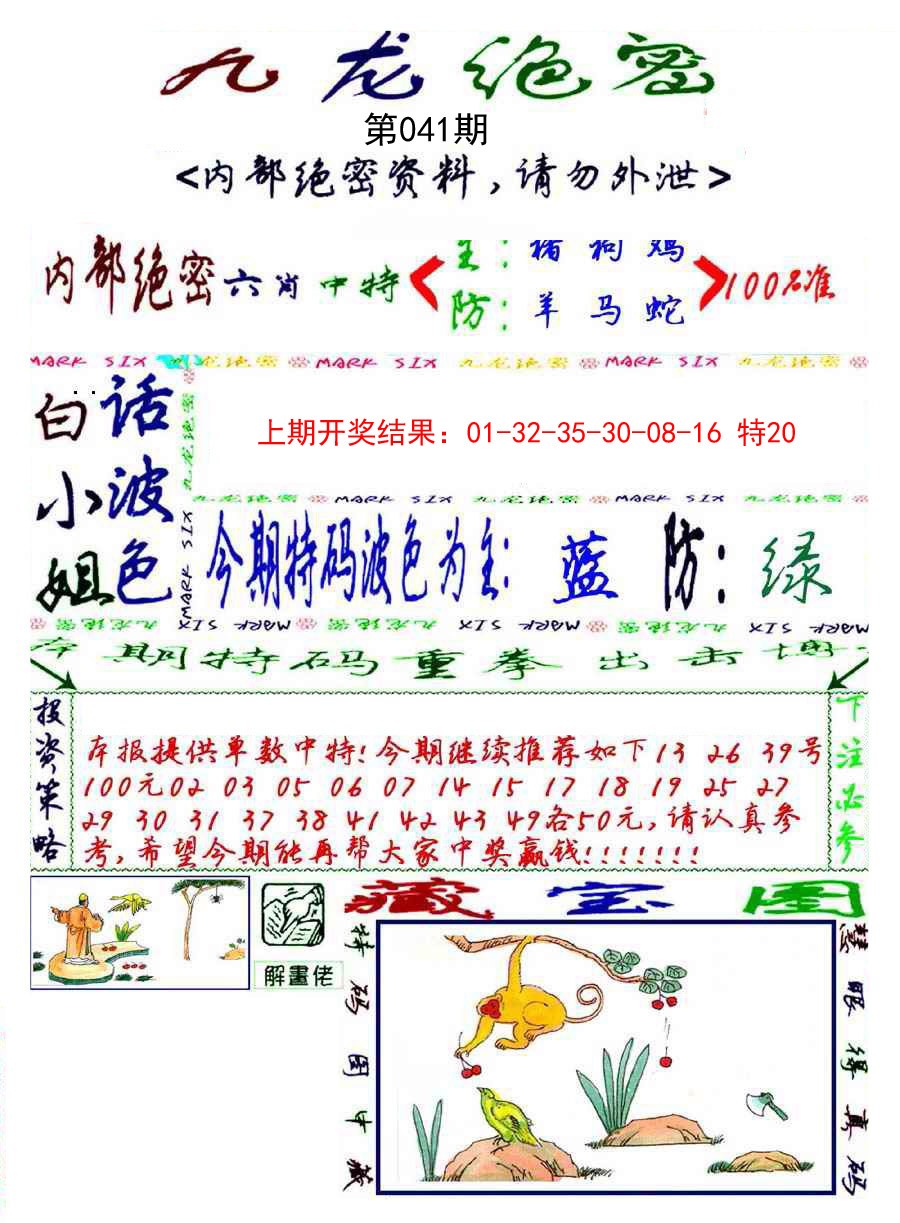 九龙绝密
第041期
<内部绝密资料,请勿外泄>
内部绝密六肖中特
主:猪狗鸡
防:羊马蛇
100%准
MARK SIX 九龙绝密 MARK SIX 九龙绝密 MARK SIX 九龙绝密
白话
小波
姐色
九龙绝密
MARK SIX
上期开奖结果：01-32-35-30-08-16 特20
九龙绝密 MARK SIX 九龙绝密 MARK SIX 九龙绝密
今期特码波色为主: 蓝 防: 绿
九龙绝密 MARK SIX MARK SIX 九龙绝密 九龙绝密 MARK SIX MARK SIX 九龙绝密 MARK SIX
本期特码重拳出击博
投资策略
本报提供单数中特!今期继续推荐如下13 26 39号
100元02 03 05 06 07 14 15 17 18 19 25 27
29 30 31 37 38 41 42 43 49各50元,请认真参
考,希望今期能再帮大家中奖赢钱!!!!!!!
下注必参
解畫佬
藏宝图
特码图中藏
慧眼得真码